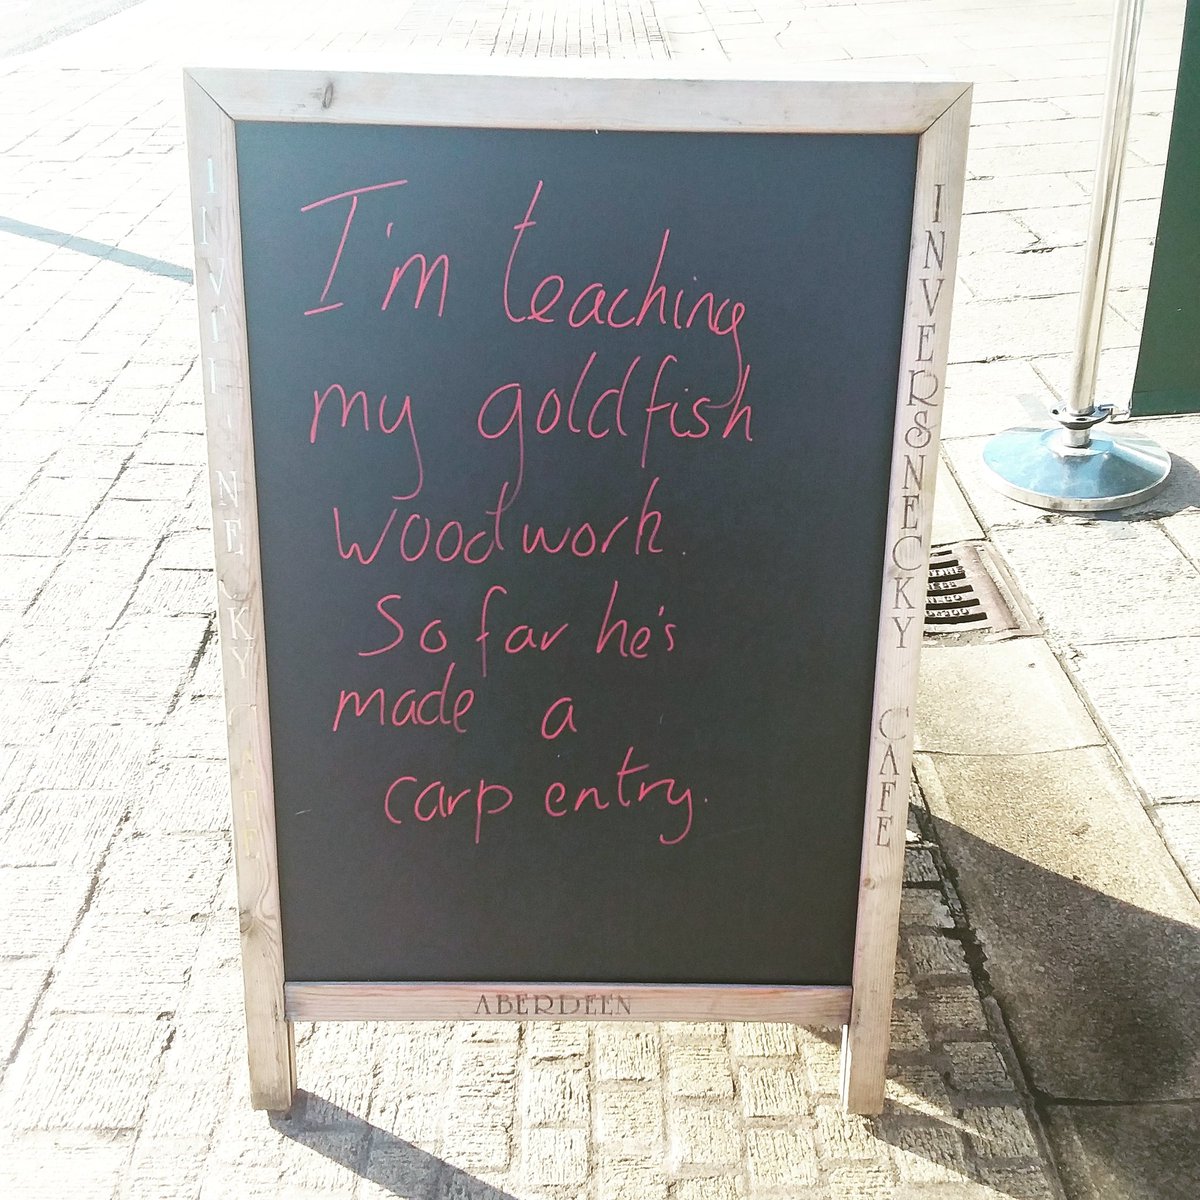 I'm teaching
my goldfish
woodwork.
So far he's
made a
carp entry.
INVERSNECKY CAFE
INVERSNECKY CAFE
ABERDEEN